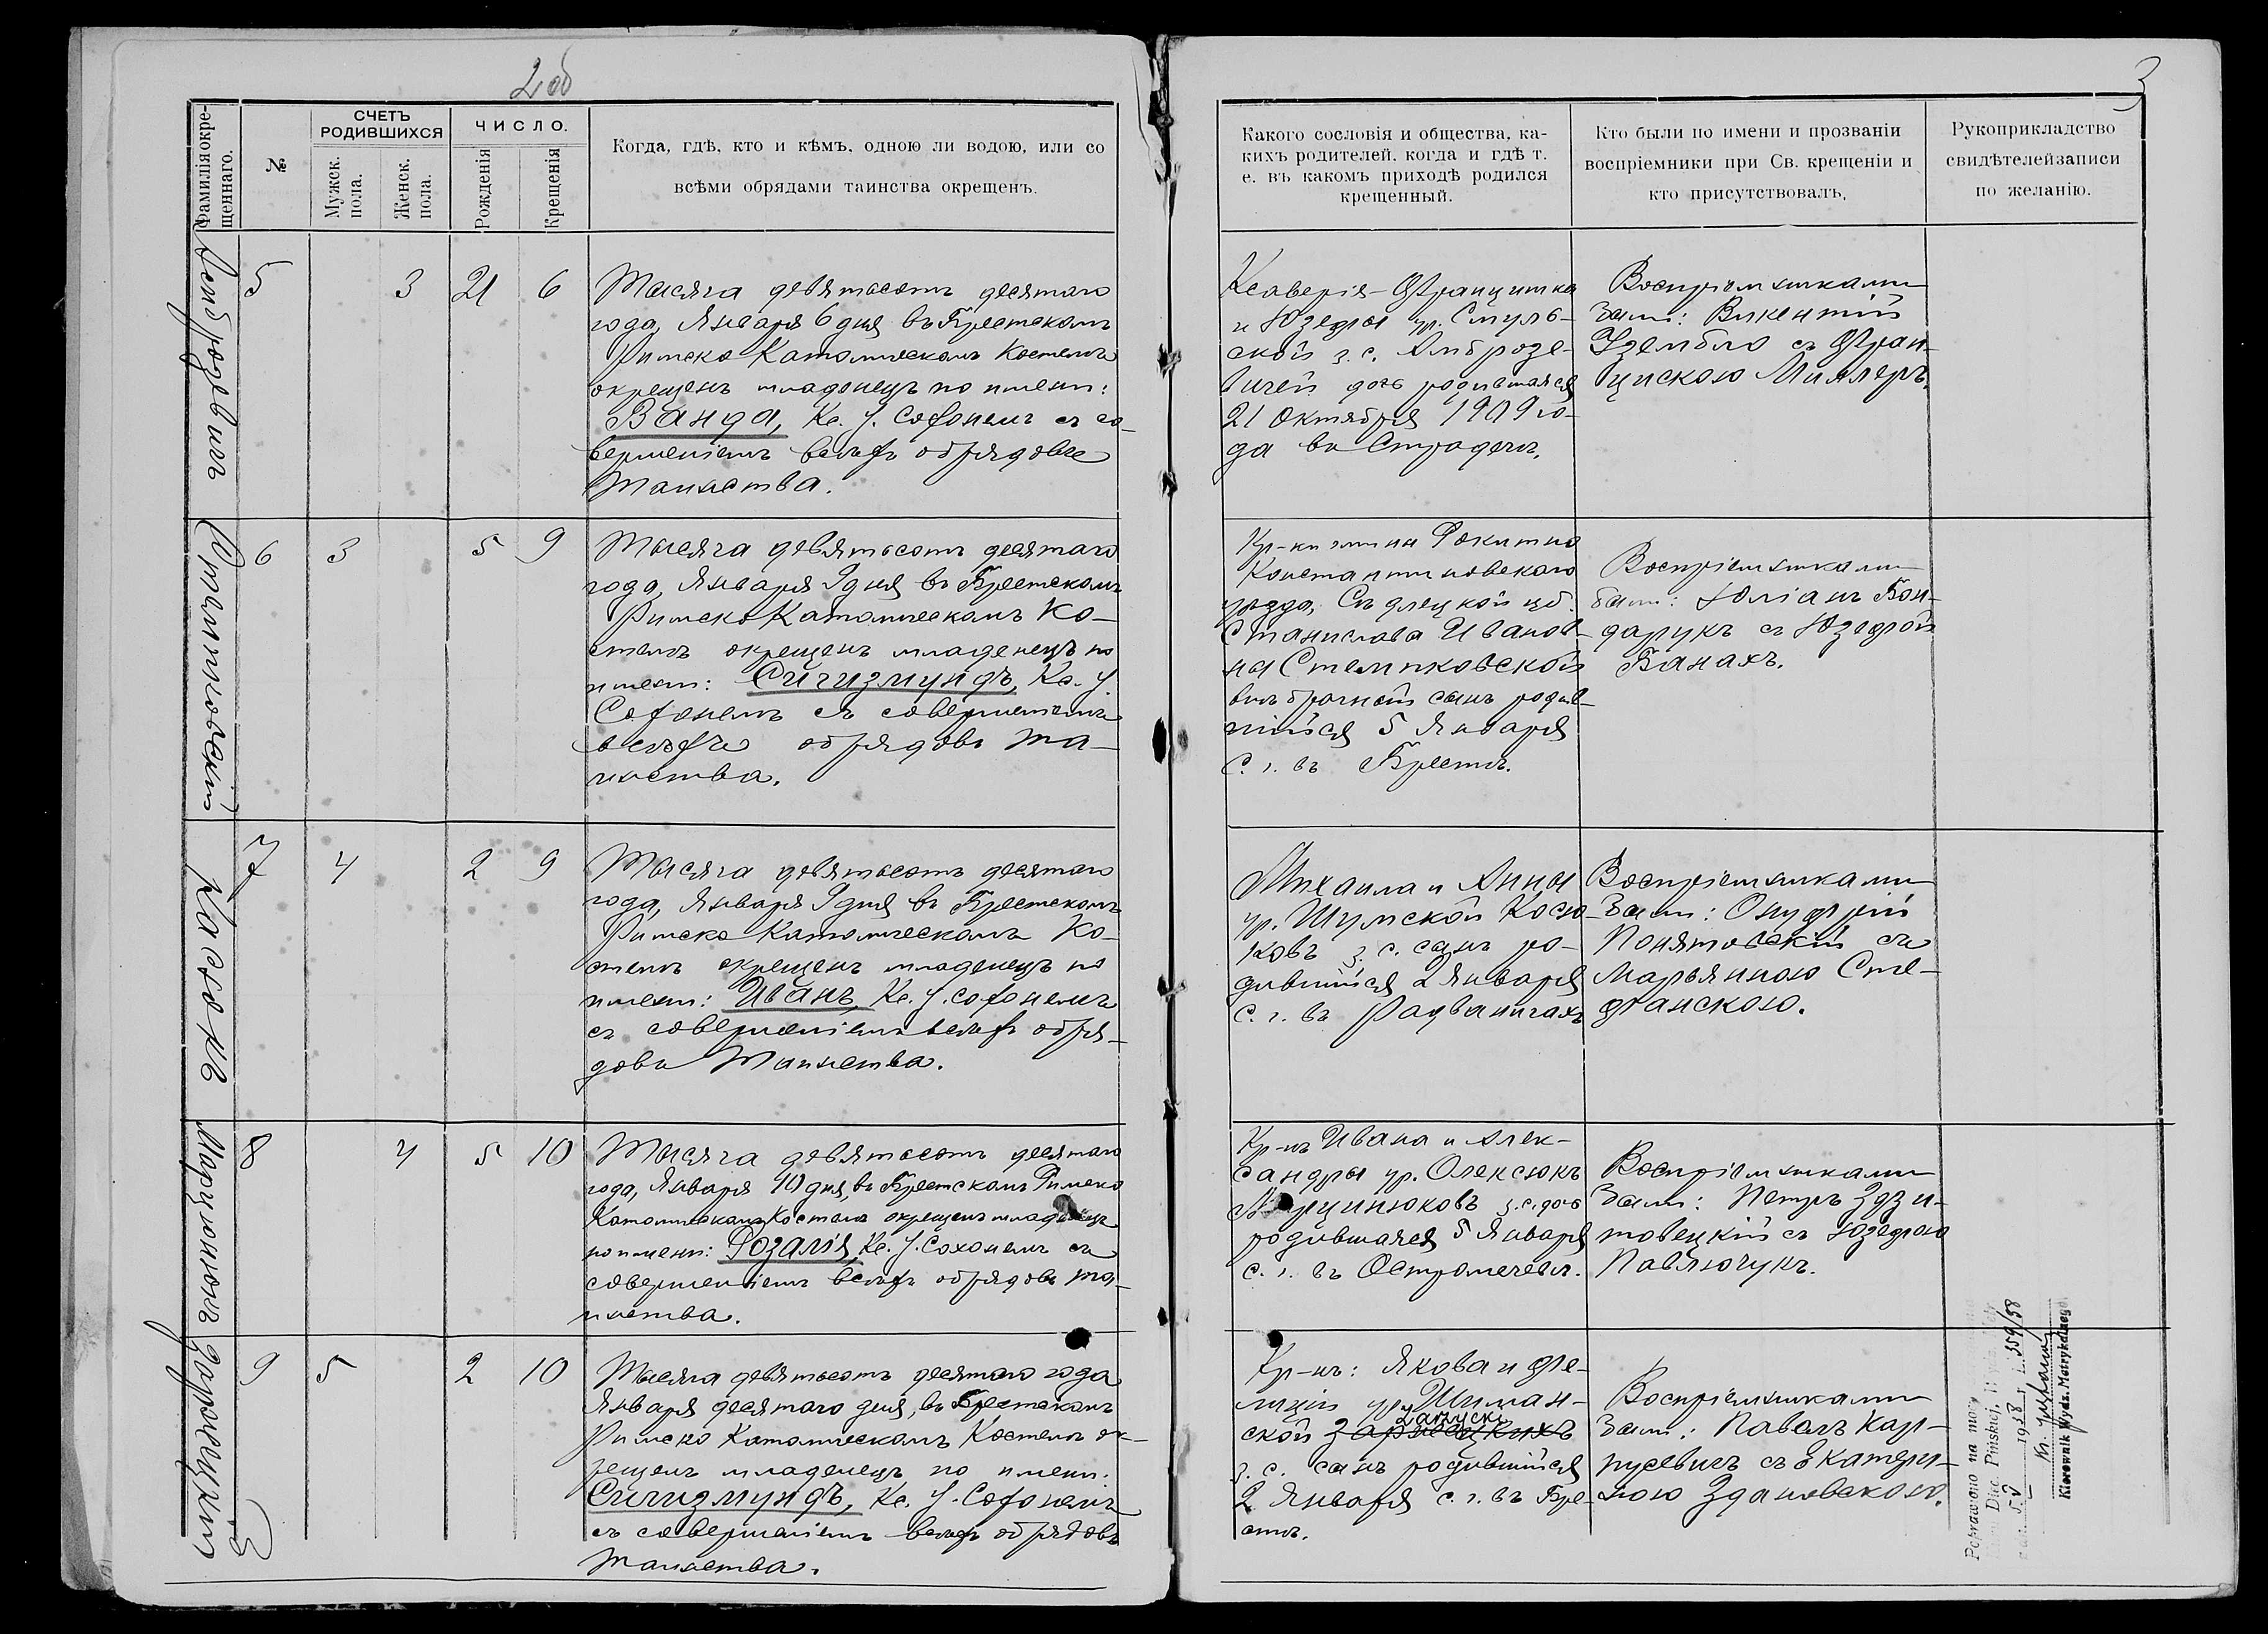 2об
3
Фамилія окре-
щеннаго.
№
СЧЕТЪ
РОДИВШИХСЯ
Мужск.
пола.
Женск.
пола.
ЧИСЛО.
Рожденія
Крещенія
Когда, гдѣ, кто и кѣмъ, одною ли водою, или со
всѣми обрядами таинства окрещенъ.
Какого сословія и общества, ка-
кихъ родителей, когда и гдѣ т.
е. въ какомъ приходѣ родился
крещенный.
Кто были по имени и прозваніи
воспріемники при Св. крещеніи и
кто присутствовалъ.
Рукоприкладство
свидѣтелей записи
по желанію.
Амброзевичъ
5
3
21
6
Тысяча девятьсотъ десятаго
года, Января 6 дня въ Брестскомъ
Римско Католическомъ Костелѣ
окрещенъ младенецъ по имени:
Ванда, Кс. У. Софонемъ съ со-
вершеніемъ всѣхъ обрядовъ
Таинства.
Ксаверія-Францишка
и Юзефы ур. Смуль-
ской з. с. Амброзе-
вичей дочь родившаяся
21 Октября 1909 го-
да въ Страдечи.
Воспріемниками
были: Викентій
Уземbло съ Фран-
цискою Миллеръ.
Стемпковскій
6
3
5
9
Тысяча девятьсотъ десятаго
года, Января 9 дня въ Брестскомъ
Римско Католическомъ Ко-
стелѣ окрещенъ младенецъ по
имени: Сигизмундъ, Кс. У.
Софонемъ съ совершеніемъ
всѣхъ обрядовъ Та-
инства.
Кр-ки гмины Рокитно
Константиновскаго
уѣзда, Сѣдлецкой губ.
Станислава Иванов-
на Стемпковской
внѣбрачный сынъ родив-
шійся 5 Января
с. г. въ Брестѣ.
Воспріемниками
были: Юліанъ Бон-
дарукъ съ Юзефой
Банахъ.
Косюкъ
7
4
2
9
Тысяча девятьсотъ десятаго
года, Января 9 дня въ Брестскомъ
Римско Католическомъ Ко-
стелѣ окрещенъ младенецъ по
имени: Иванъ, Кс. У. Софонемъ
съ совершеніемъ всѣхъ обря-
довъ Таинства.
Михаила и Анны
ур. Шумской Косю-
ковъ з. с. сынъ ро-
дившійся 2 Января
с. г. въ Радваничахъ
Воспріемниками
были: Онуфрій
Понятовскій съ
Марьянною Сте-
фанскою.
Марцинюкъ
8
4
5
10
Тысяча девятьсотъ десятаго
года, Января 10 дня, въ Брестскомъ Римско
Католическомъ Костелѣ окрещенъ младенецъ
по имени: Розалія, Кс. У. Сохонемъ съ
совершеніемъ всѣхъ обрядовъ Та-
инства.
Кр-нъ Ивана и Алек-
сандры ур. Олексюкъ
Марцинюковъ з. с. дочь
родившаяся 5 Января
с. г. въ Остромечевѣ.
Воспріемниками
были: Петръ Здзи-
товецкій съ Юзефою
Павлючукъ.
9
5
2
10
Тысяча девятьсотъ десятаго года
Января десятаго дня, въ Брестскомъ
Римско Католическомъ Костелѣ ок-
рещенъ младенецъ по имени:
Сигизмундъ, Кс. У. Софонемъ
съ совершеніемъ всѣхъ обрядовъ
Таинства.
Кр-нъ: Якова и Фе-
лиціи ур. Шиман-
ской
з. с. сынъ родившійся
2 Января с. г. въ Бре-
стѣ.
Воспріемниками
были: Павелъ Кар-
пусевичъ съ Екатери-
ною Здановскою.
Poprawiono na mocy
Diec. Pińskiej,
1938 r. L. 559/38
Kierownik Wydz. Metrykalnego